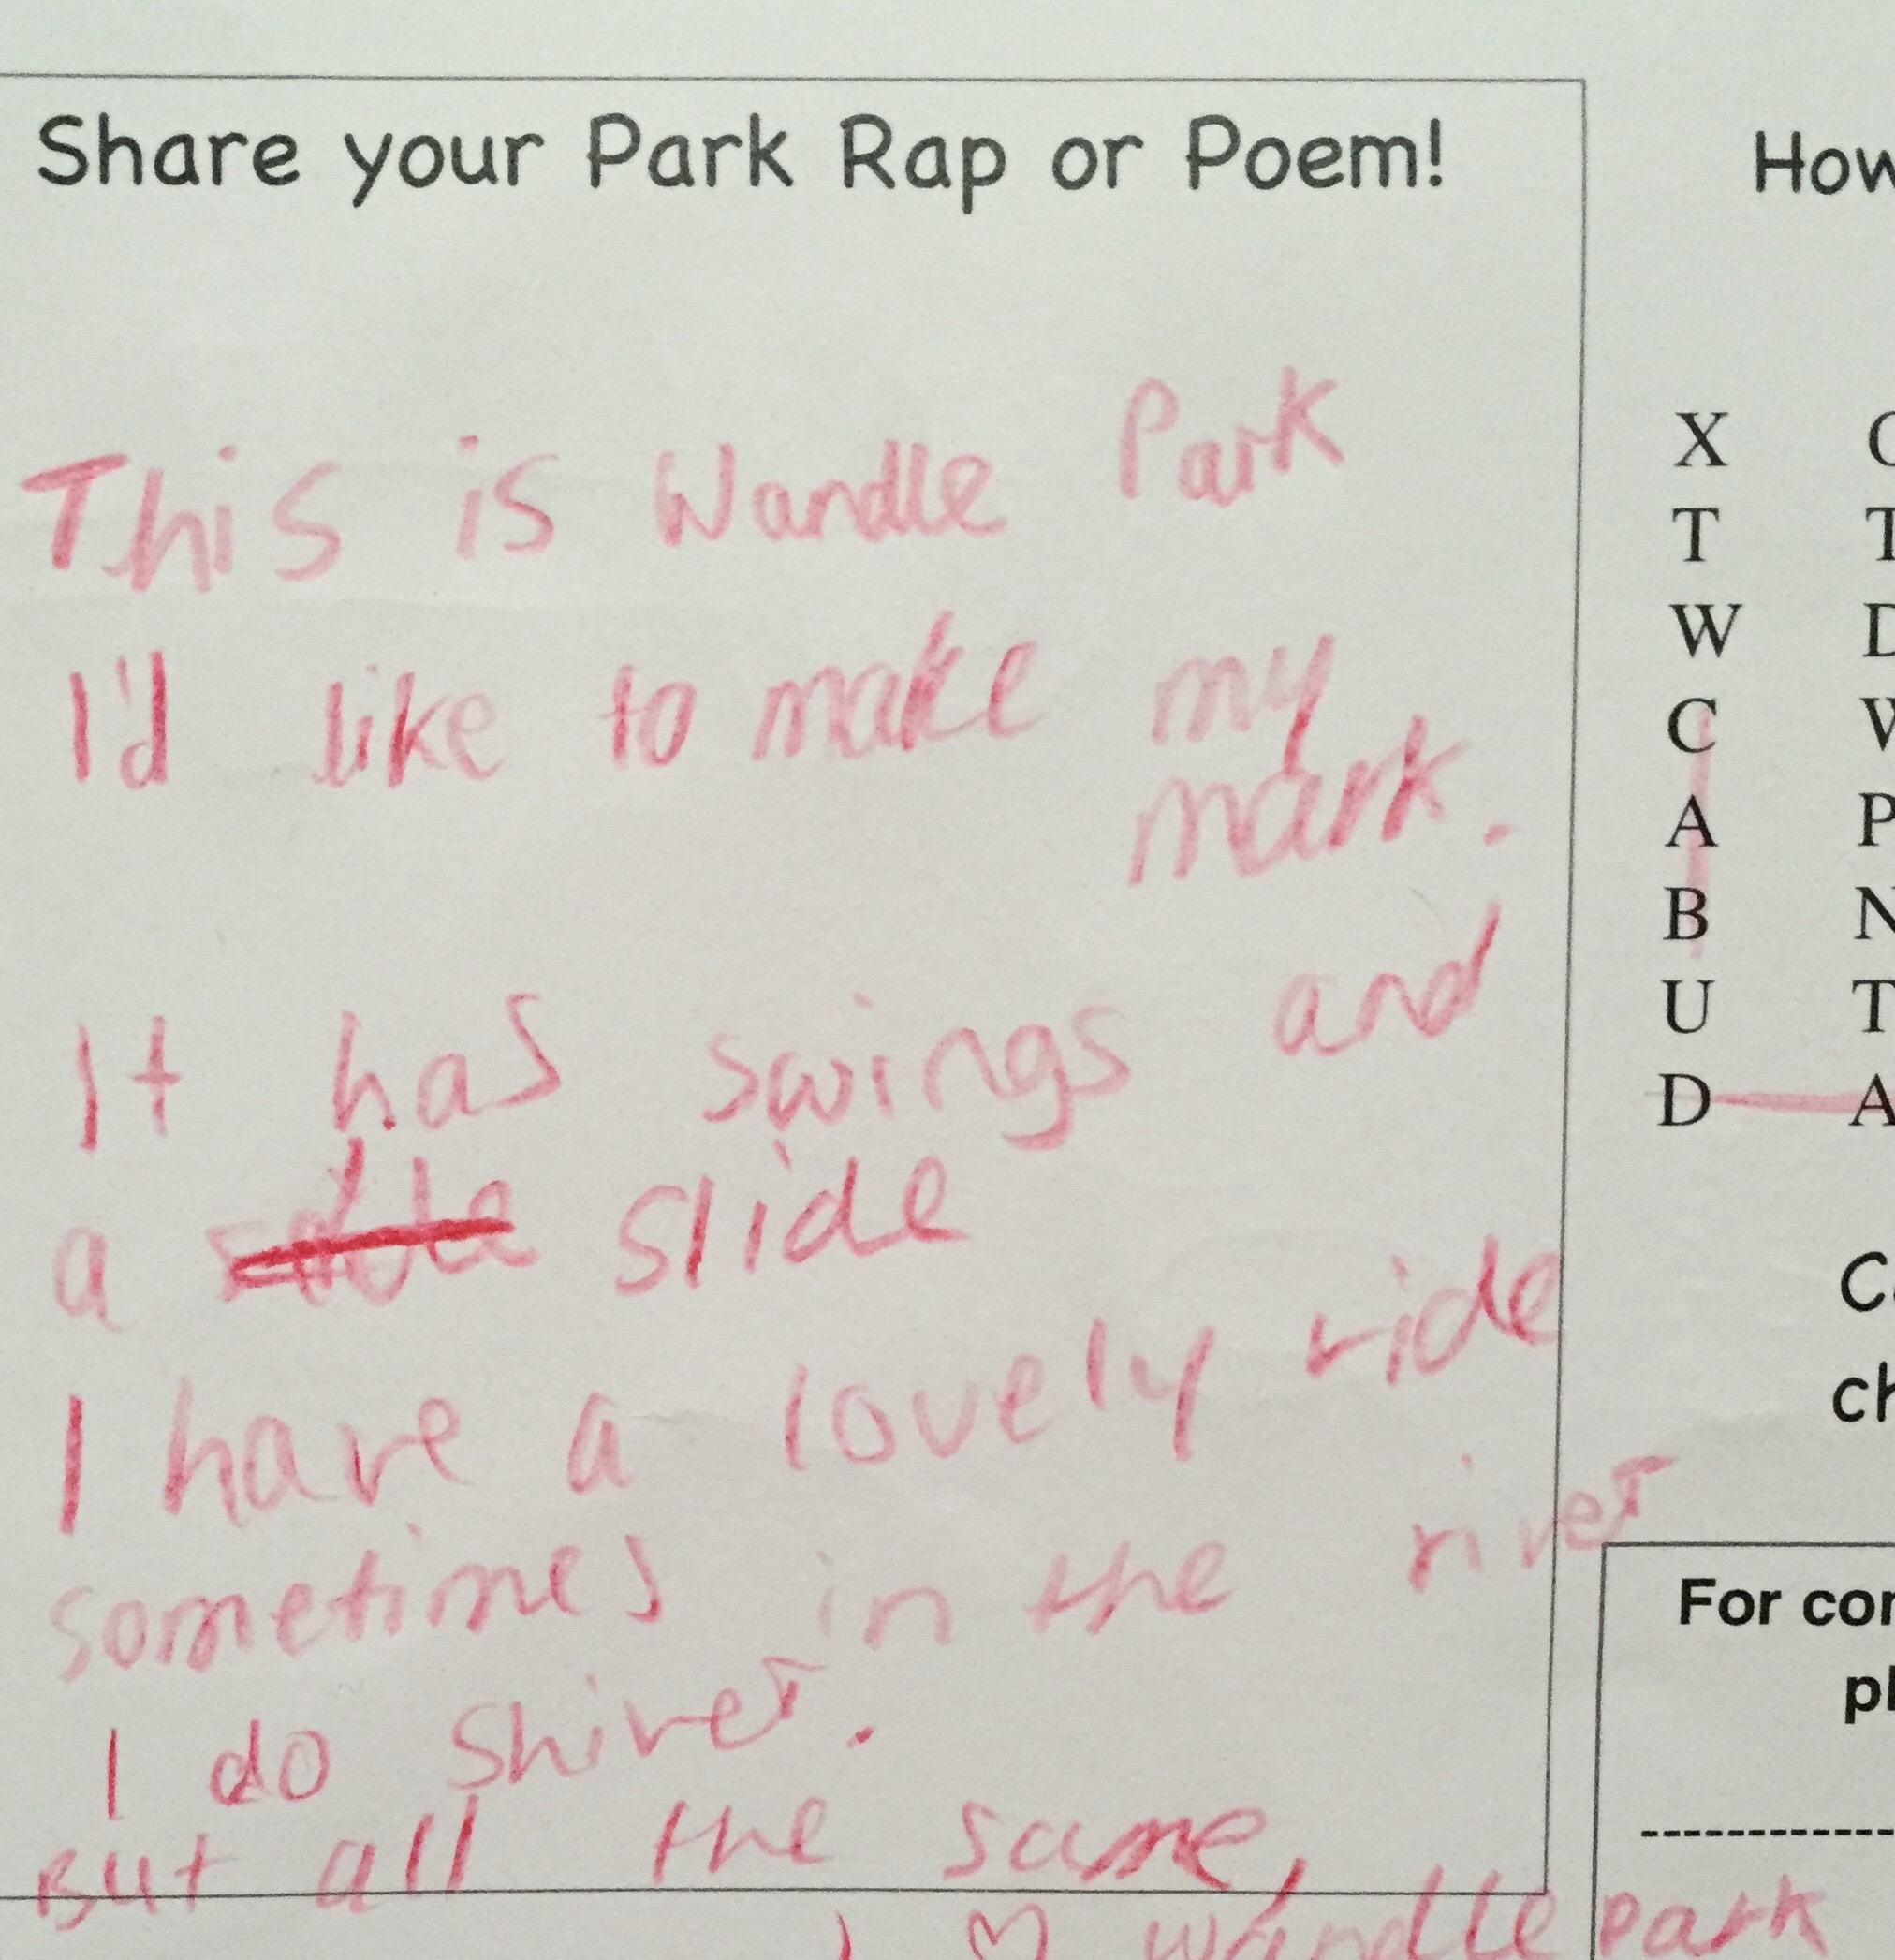 Share your Park Rap or Poem!
This is Wandle Park
I'd like to make my
mark.
It has swings and
a slide
I have a lovely ride
sometimes in the river
I do shiver.
But all the same,
I ♡ wandle park
How
X
T T
W
C
A P
B N
U T
D A
ch
For con
pl